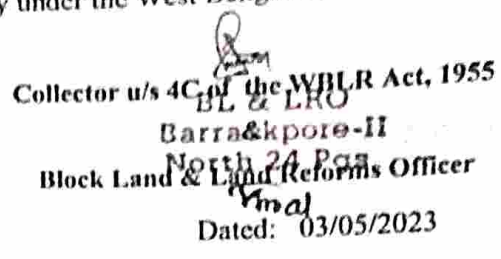 under the West
Collector u/s 4C of the WBLR Act, 1955
BL & LRO
Barrackpore-II
North 24 Pgs
Block Land & Land Reforms Officer
Dated: 03/05/2023